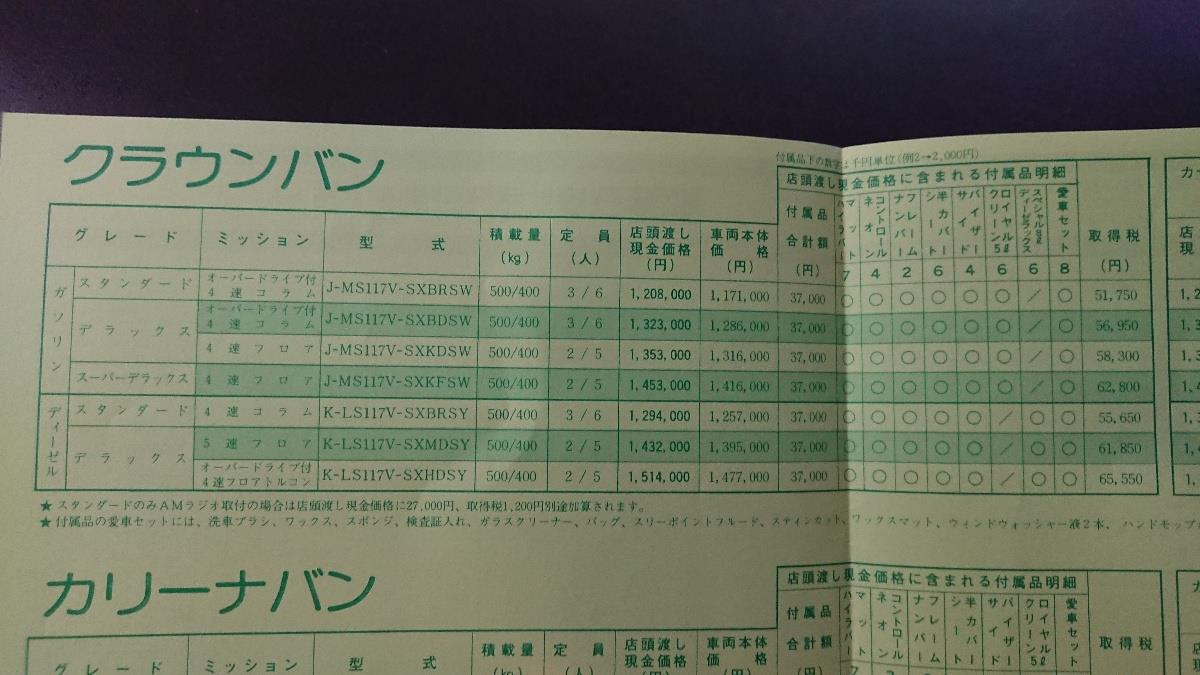 クラウンバン
付属品下の数字は千円単位(例2→2,000円)
店頭渡し現金価格に含まれる付属品明細
グレード ミッション 型式 積載量(kg) 定員(人) 店頭渡し現金価格(円) 車両本体価格(円) 付属品合計額(円) ハイラバーマット ネオンコントロール ナンバーフレーム シート半カバー サイドバイザー クリーン5ℓロイヤル 愛車セット 取得税(円)
7 4 2 6 4 6 6 8
ガソリン スタンダード オーバードライブ付4速コラム J-MS117V-SXBRSW 500/400 3/6 1,208,000 1,171,000 37,000 ○ ○ ○ ○ ○ ○ / ○ 51,750
デラックス オーバードライブ付4速コラム J-MS117V-SXBDSW 500/400 3/6 1,323,000 1,286,000 37,000 ○ ○ ○ ○ ○ ○ / ○ 56,950
4速フロア J-MS117V-SXKDSW 500/400 2/5 1,353,000 1,316,000 37,000 ○ ○ ○ ○ ○ ○ / ○ 58,300
スーパーデラックス 4速フロア J-MS117V-SXKFSW 500/400 2/5 1,453,000 1,416,000 37,000 ○ ○ ○ ○ ○ ○ / ○ 62,800
ディーゼル スタンダード 4速コラム K-LS117V-SXBRSY 500/400 3/6 1,294,000 1,257,000 37,000 ○ ○ ○ ○ ○ / ○ ○ 55,650
デラックス 5速フロア K-LS117V-SXMDSY 500/400 2/5 1,432,000 1,395,000 37,000 ○ ○ ○ ○ ○ / ○ ○ 61,850
オーバードライブ付4速フロアトルコン K-LS117V-SXHDSY 500/400 2/5 1,514,000 1,477,000 37,000 ○ ○ ○ ○ ○ / ○ ○ 65,550
★スタンダードのみAMラジオ取付の場合は店頭渡し現金価格に27,000円、取得税1,200円別途加算されます。
★付属品の愛車セットには、洗車ブラシ、ワックス、スポンジ、検査証入れ、ガラスクリーナー、バッグ、スリーポイントフルード、スティンカット、ワックスマット、ウィンドウォッシャー液2本、ハンドモップ
カリーナバン
店頭渡し現金価格に含まれる付属品明細
グレード ミッション 型式 積載量(kg) 定員(人) 店頭渡し現金価格(円) 車両本体価格 付属品合計額 ハイラバーマット ネオンコントロール ナンバーフレーム シート半カバー サイドバイザー クリーン5ℓロイヤル 愛車セット 取得税